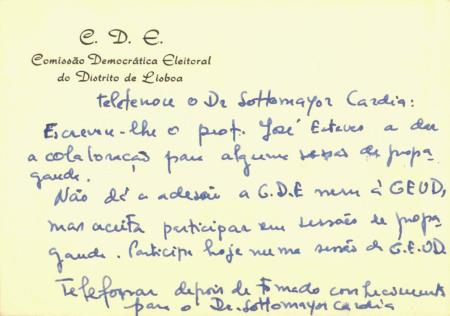 C. D. E.
Comissão Democrática Eleitoral
do Distrito de Lisboa
Telefonou o Dr Sottomayor Cardia:
Escreveu-lhe o prof. José Esteves a dar
a colaboração para alguma sessão de propa
ganda.
Não dá a adesão a C.D.E nem à CEUD,
mas aceita participar em sessão de propa
ganda. Participa hoje numa sessão da C.E.UD.
Telefonar depois de tomado conhecimento
para o Dr. Sottomayor Cardia